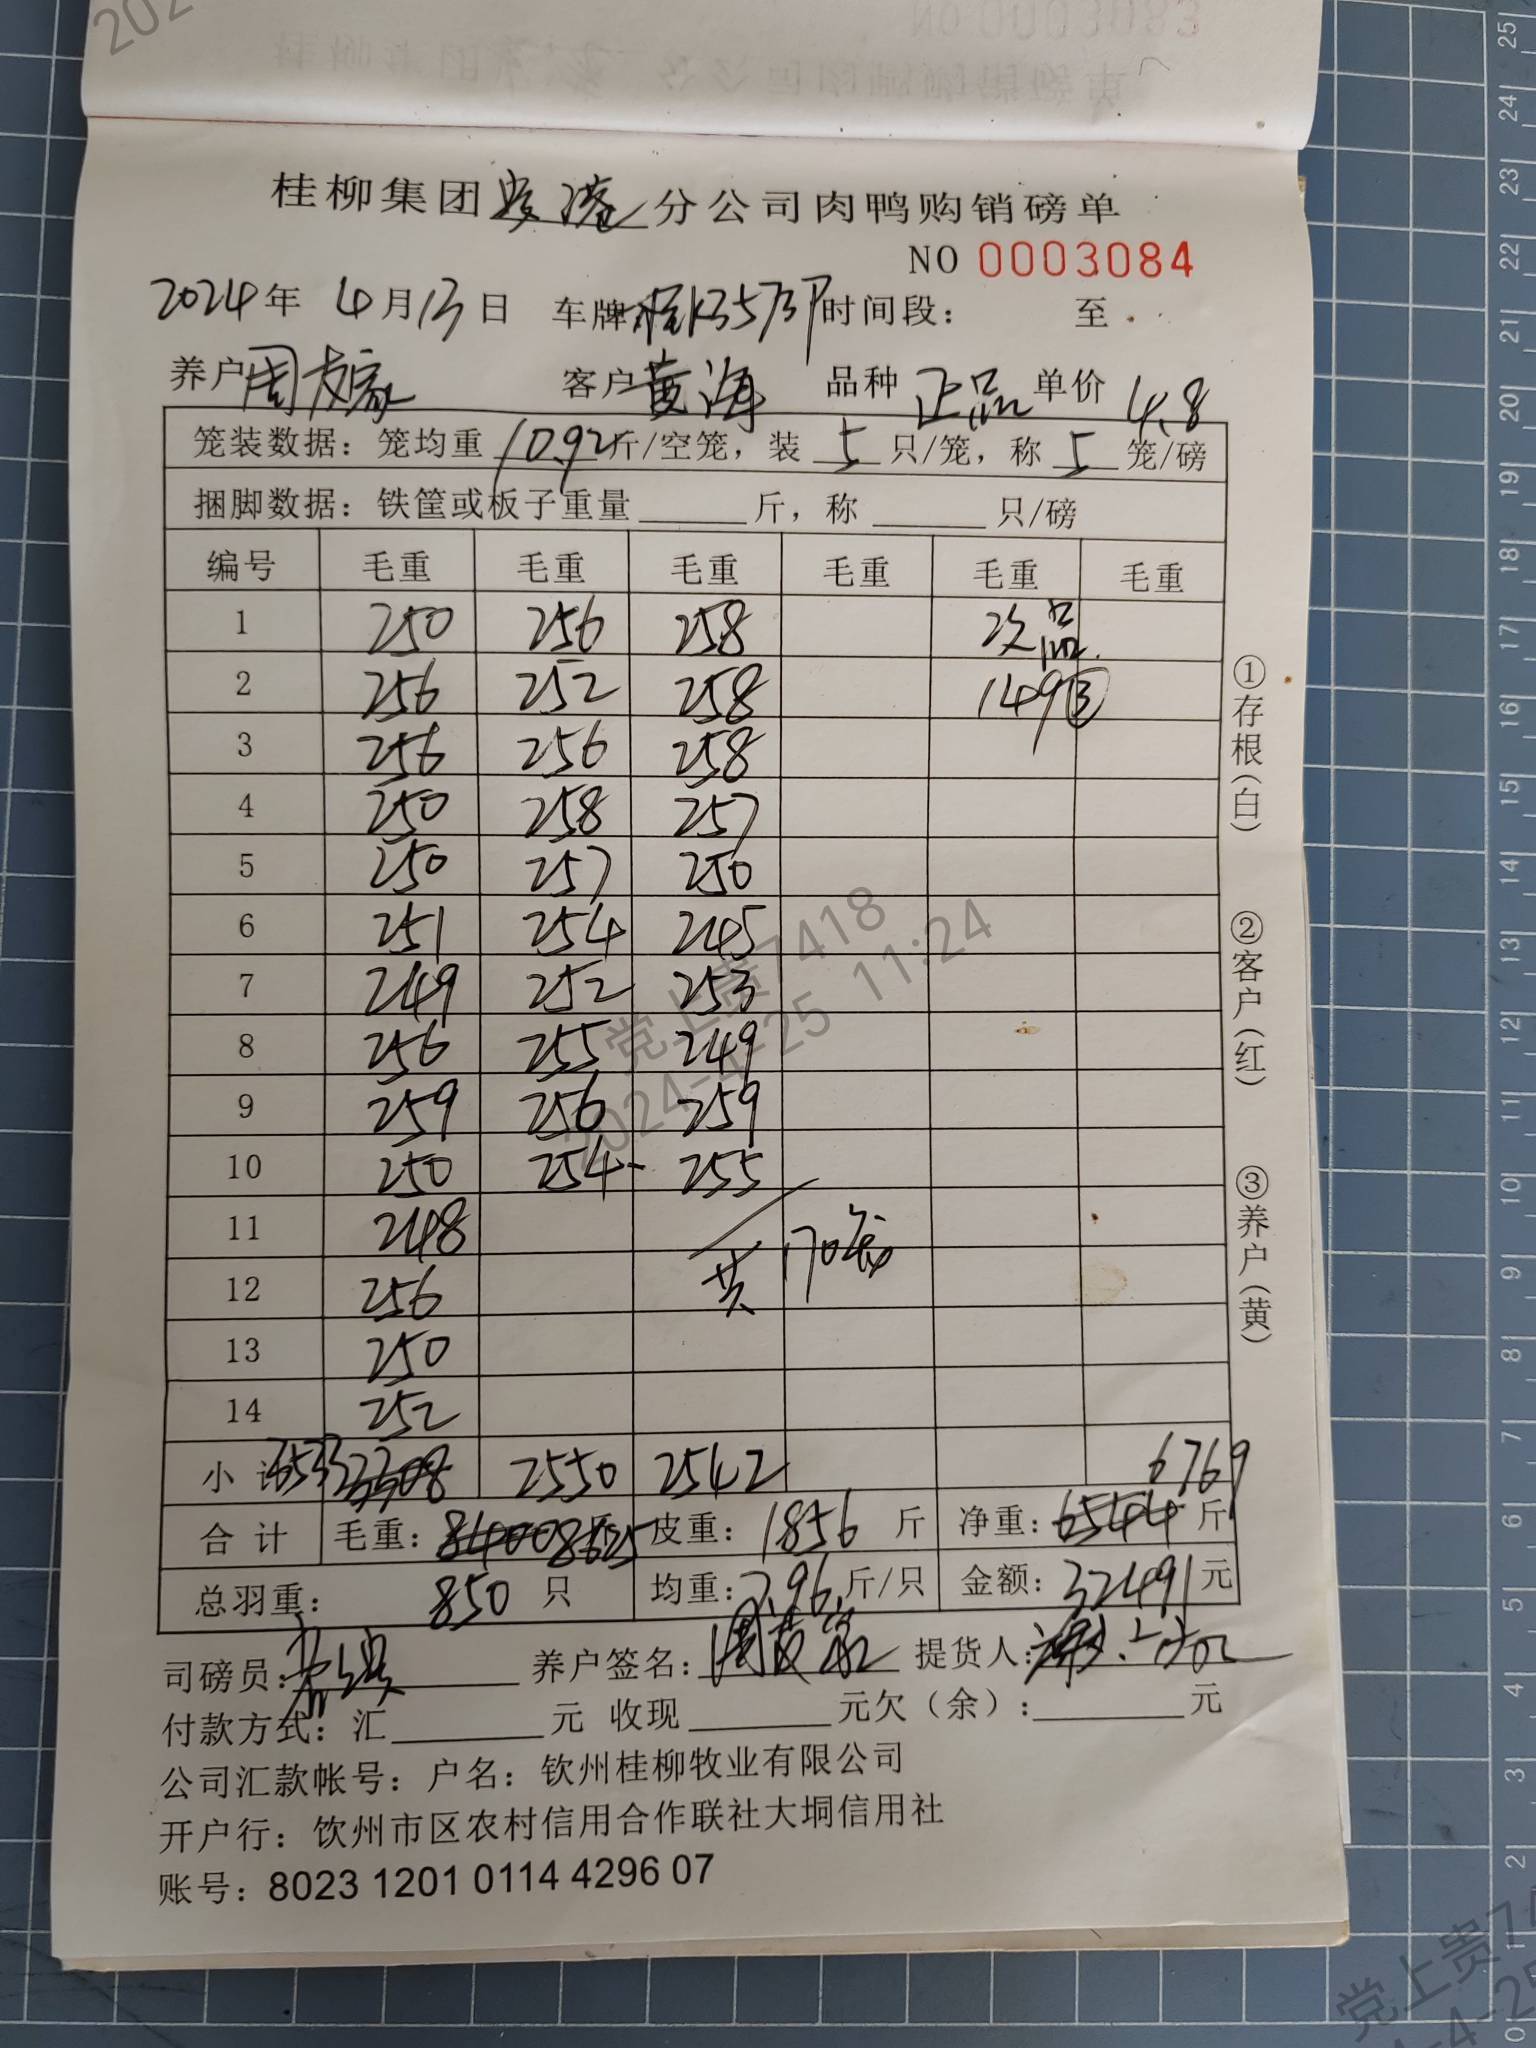 桂柳集团 分公司肉鸭购销磅单
NO 0003084
2024年 4月13日 车牌 时间段： 至
养户 周友家 客户 黄海 品种 正品 单价 4.8
笼装数据：笼均重 10.92 斤/空笼，装 5 只/笼，称 5 笼/磅
捆脚数据：铁筐或板子重量 斤，称 只/磅
编号 毛重 毛重 毛重 毛重 毛重 毛重
1 250 256 258 次品
2 256 252 258 149③
3 256 256 258
4 250 258 257
5 250 257 250
6 251 254 245
7 249 252 253
8 256 255 249
9 259 256 259
10 250 254 255
11 248
12 256 共170笼
13 250
14 252
小计 3533 2550 2542 6769
合计 毛重：8625 皮重：1856 斤 净重：6544 斤
总羽重： 850 只 均重：7.96 斤/只 金额：32491 元
司磅员： 养户签名：周友家 提货人：
付款方式：汇 元 收现 元欠（余）： 元
公司汇款帐号：户名：钦州桂柳牧业有限公司
开户行：钦州市区农村信用合作联社大垌信用社
账号：8023 1201 0114 4296 07
①存根（白）
②客户（红）
③养户（黄）
党上贵7418
2024-4-25 11:24